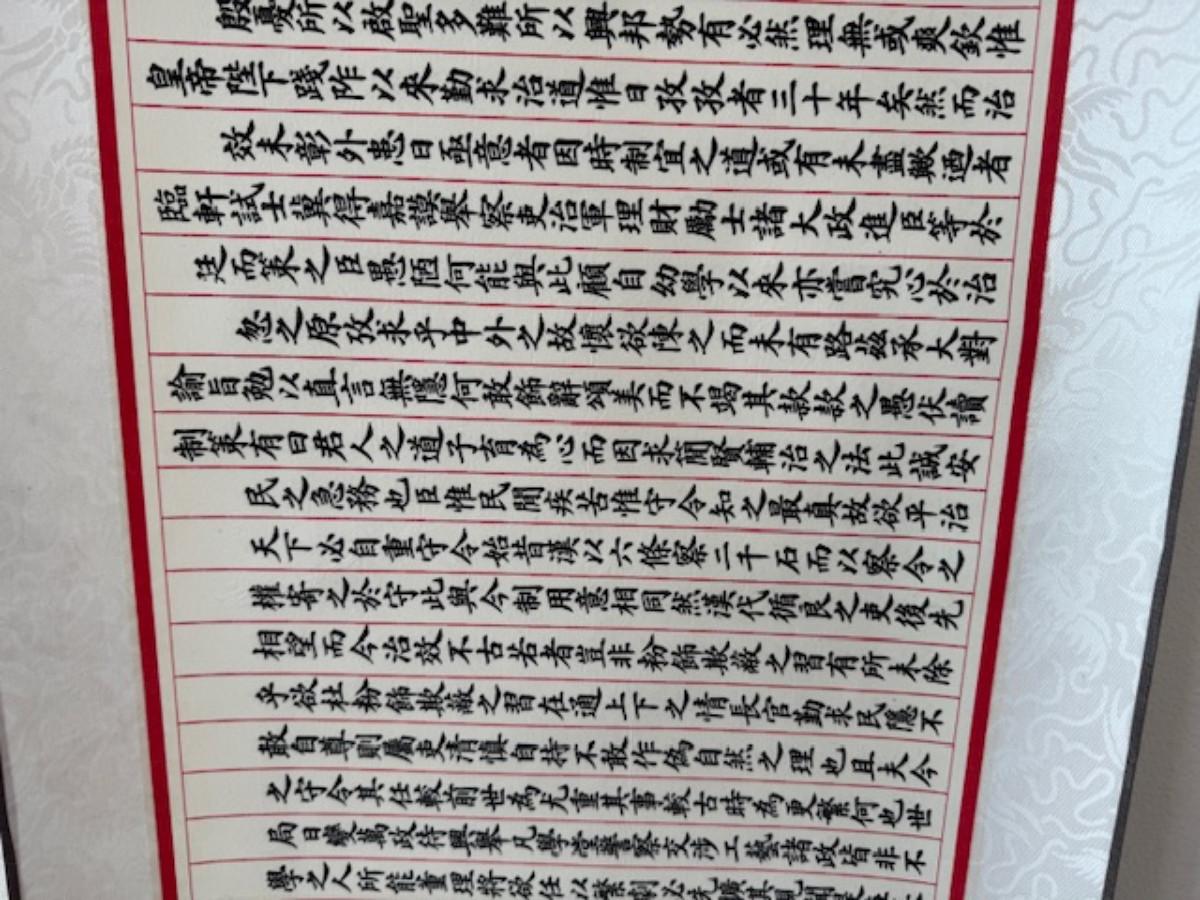 殷憂所以啟聖多難所以興邦勢有必然理無或爽欽惟
皇帝陛下踐阼以來勤求治道惟日孜孜者三十年矣然而治
效未彰外患日亟意者因時制宜之道或有未盡歟迺者
臨軒試士冀得嘉謨舉察吏治軍理財勵士諸大政進臣等於
廷而策之臣愚陋何能與此顧自幼學以來亦嘗究心於治
忽之原攷求乎中外之故懷欲陳之而未有路茲承大對
諭旨勉以直言無隱何敢飾辭頌美而不竭其款款之愚伏讀
制策有曰君人之道子育為心而因求簡賢輔治之法此誠安
民之急務也臣惟民間疾苦惟守令知之最真故欲平治
天下必自重守令始昔漢以六條察二千石而以察令之
權寄之於守此與今制用意相同然漢代循良之吏後先
相望而今治效不古若者豈非粉飾欺蔽之習有所未除
乎欲杜粉飾欺蔽之習在通上下之情長官勤求民隱不
敢自尊則屬吏清慎自持不敢作偽自然之理也且夫今
之守令其任較前世為尤重其事較古時為更繁何也世
局日變萬政待興舉凡學堂警察交涉工藝諸政皆非不
學之人所能董理將欲任以繁劇必先擴其見聞